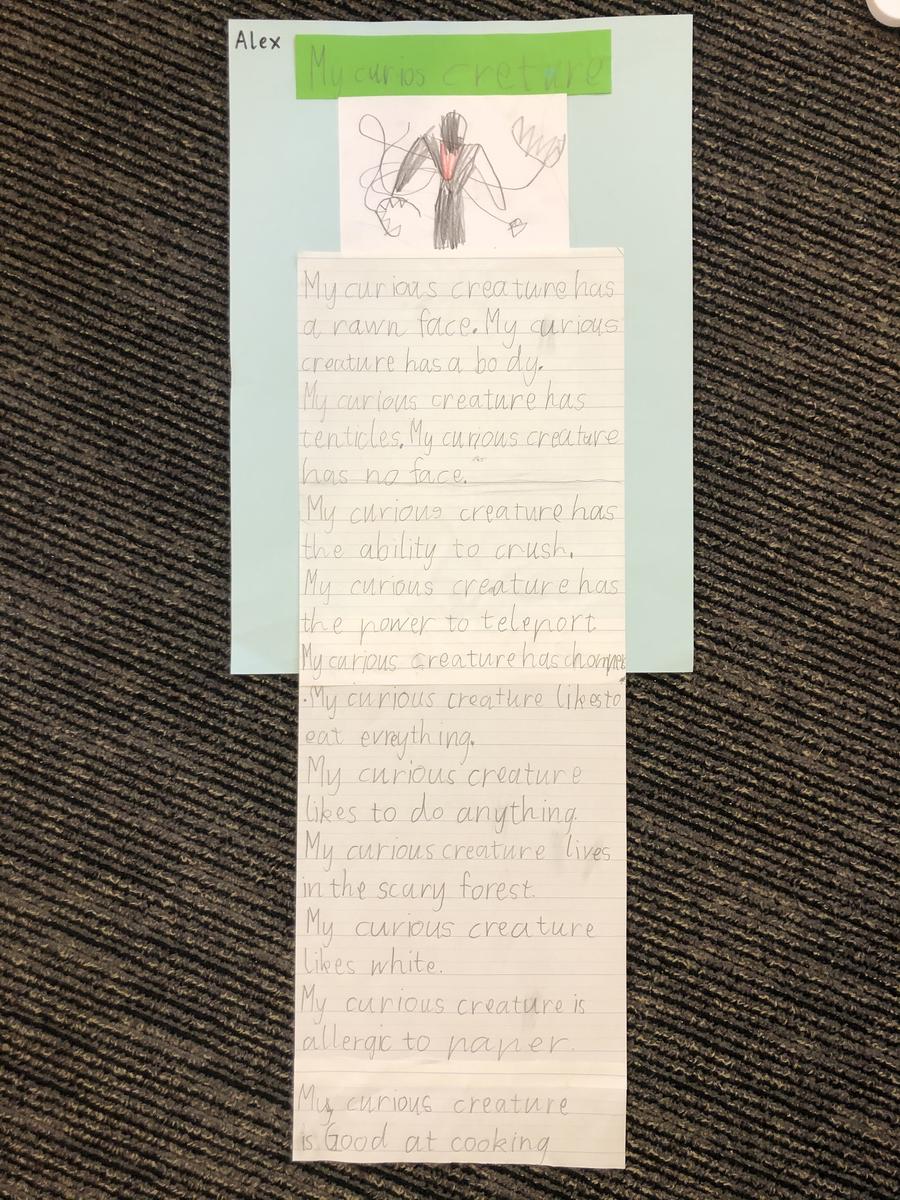 Alex
My curios creture
My curious creature has
a rawn face. My curious
creature has a body.
My curious creature has
tenticles. My curious creature
has no face.
My curious creature has
the ability to crush.
My curious creature has
the power to teleport
My curious creature has chomper
. My curious creature likes to
eat evreything.
My curious creature
likes to do anything.
My curious creature lives
in the scary forest.
My curious creature
likes white.
My curious creature is
allergic to paper.
My curious creature
is Good at cooking